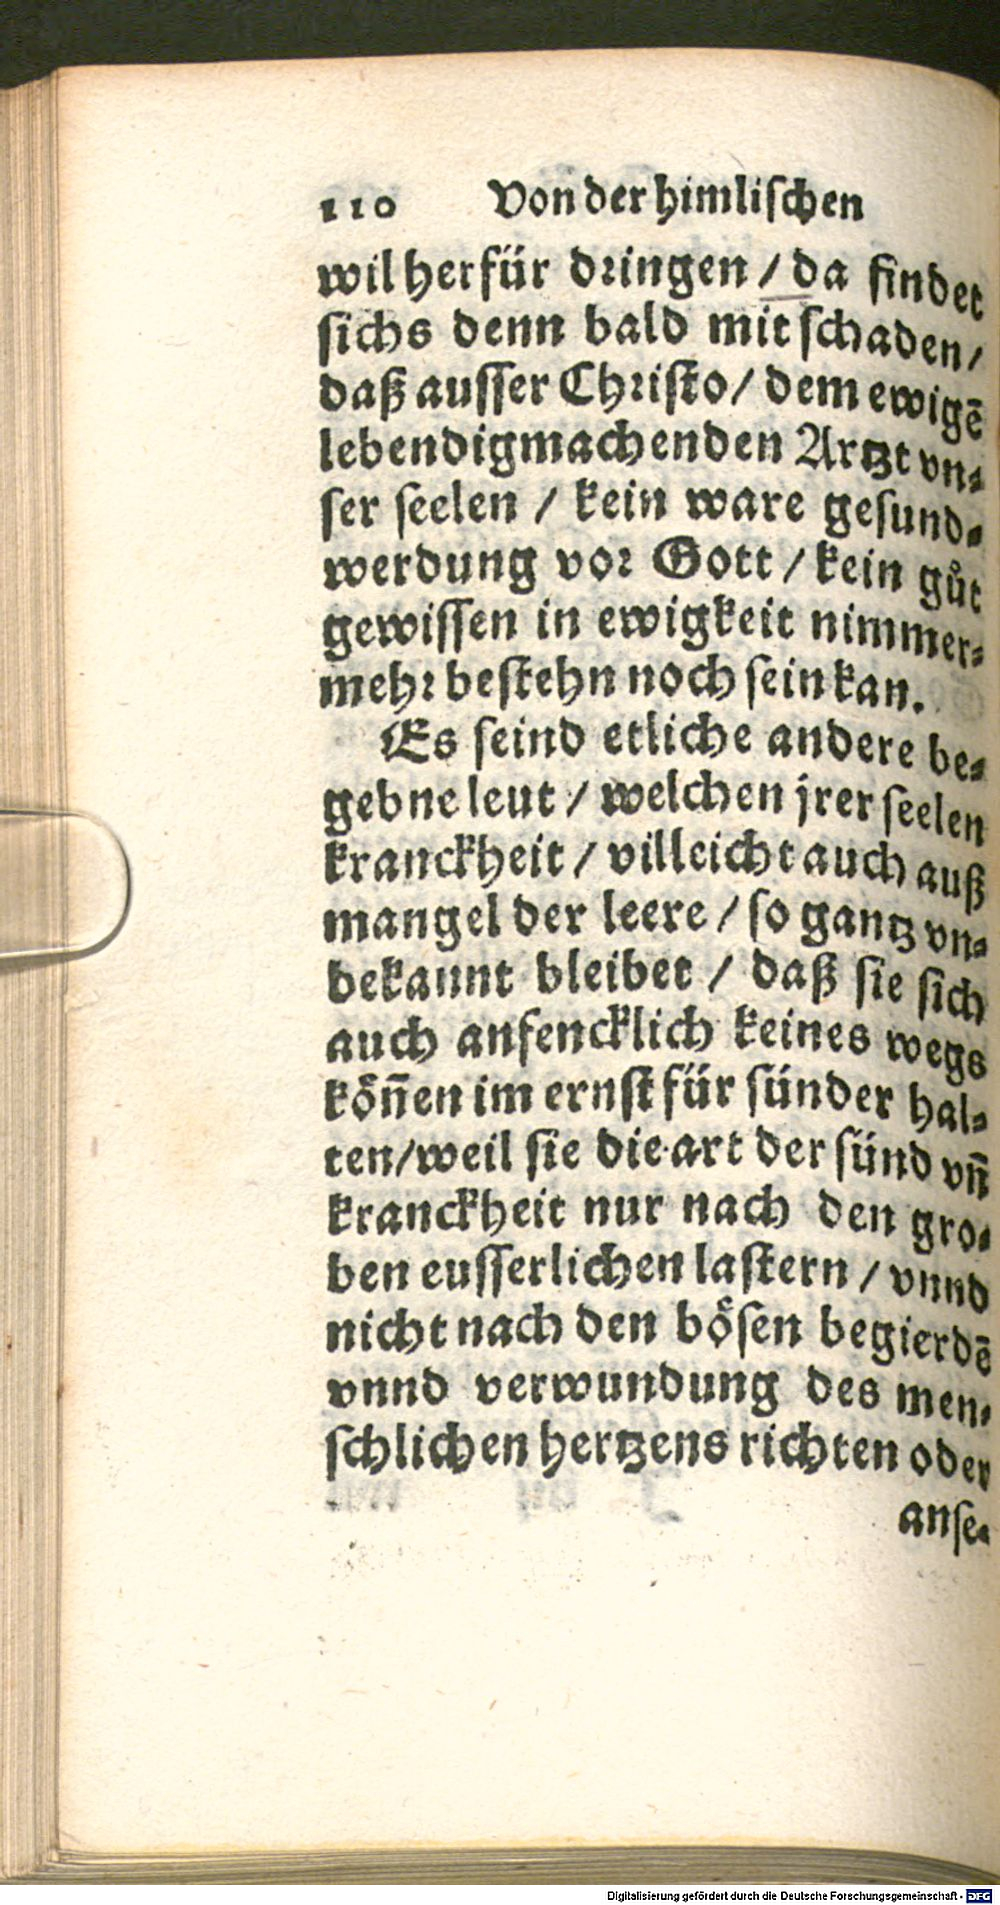 110 Von der himlischen
wil herfür dringen / da findet
sichs denn bald mit schaden /
daß ausser Christo / dem ewigē
lebendigmachenden Artzt vn⸗
ser seelen / kein ware gesund⸗
werdung vor Gott / kein gůt
gewissen in ewigkeit nimmer⸗
mehr bestehn noch sein kan.
Es seind etliche andere be⸗
gebne leut / welchen jrer seelen
kranckheit / villeicht auch auß
mangel der leere / so gantz vn⸗
bekannt bleibet / daß sie sich
auch anfencklich keines wegs
koͤñen im ernst für sünder hal⸗
ten / weil sie die art der sünd vñ
kranckheit nur nach den gro⸗
ben eusserlichen lastern / vnnd
nicht nach den boͤsen begierdē
vnnd verwundung des men⸗
schlichen hertzens richten oder
anse⸗
Digitalisierung gefördert durch die Deutsche Forschungsgemeinschaft - DFG